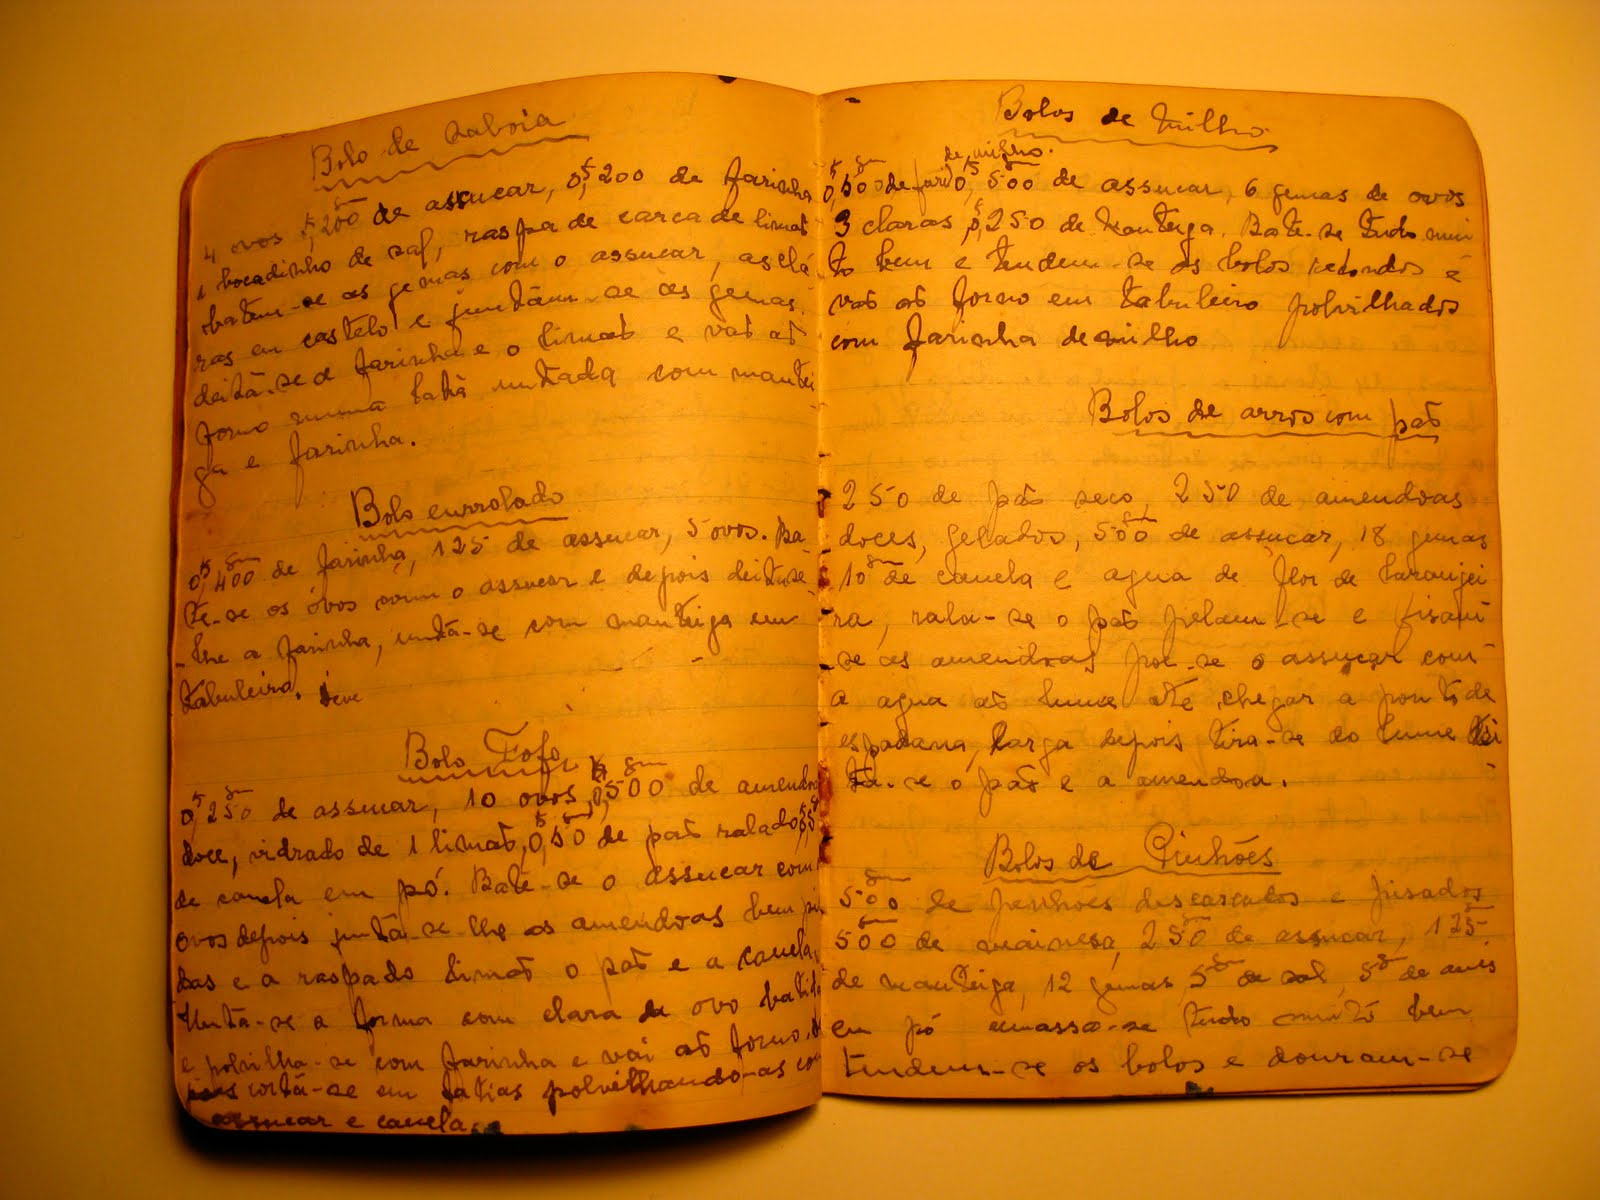 Bolo de Saboia
4 ovos 0,200 de assucar, 0,200 de farinha
1 bocadinho de sal, raspa de carca de limaõ
batem-se as gemas com o assucar, as clá-
ras em castelo e juntãm-se ás gemas.
deitã-se a farinha e o limaõ e vaõ aõ
forno numa latã untada com mantei
ga e farinha.
Bolo enrrolado
0,400 de farinha, 125 de assucar, 5 ovos. Ba-
te-se os óvos com o assucar e depois deita-se
-lhe a farinha, untã-se com manteiga um
tabuleiro. Leve
Bolo Fofo
0,250 de assucar, 10 ovos, 0,500 de amendoa
doce, vidrado de 1 limaõ, 0,50 de paõ ralado,
de canela em pó. Bate-se o assucar com
ovos depois juntã-se lhe as amendoas bem pi
das e a raspado limaõ o paõ e a canela,
Untã-se a forma com clara de ovo batida
e polvilha-se com farinha e vai aõ forno.
cortã-se em fatias polvilhando-as com
assucar e canela.
Bolos de milho
0,500 de farin de milho. 0,500 de assucar, 6 gemas de ovos
3 claras 0,250 de manteiga. Bate-se tudo mui
to bem e tendem-se os bolos redondos e
vaõ aõ forno em tabuleiro polvilhados
com farinha de milho
Bolos de arros com paõ
250 de paõ seco, 250 de amendoas
doces, gelados, 500 gm de assucar, 18 gemas
10 gm de canela e agua de flor de laranjei
ra, rala-se o paõ pelam-se e pisam
se as amendoas poe-se o assucar com
a agua aõ lume até chegar a ponto de
espadana, larga depois tira-se do lume dei
ta-se o paõ e a amendoa.
Bolos de Pinhões
500 gm de penhões descascados e pisados
500 de mainesa, 250 gm de assucar, 125
de manteiga, 12 gemas 5 gm de sal, 5 g de anis
em pó amassa-se tudo muitó bem
tendem-se os bolos e douram-se